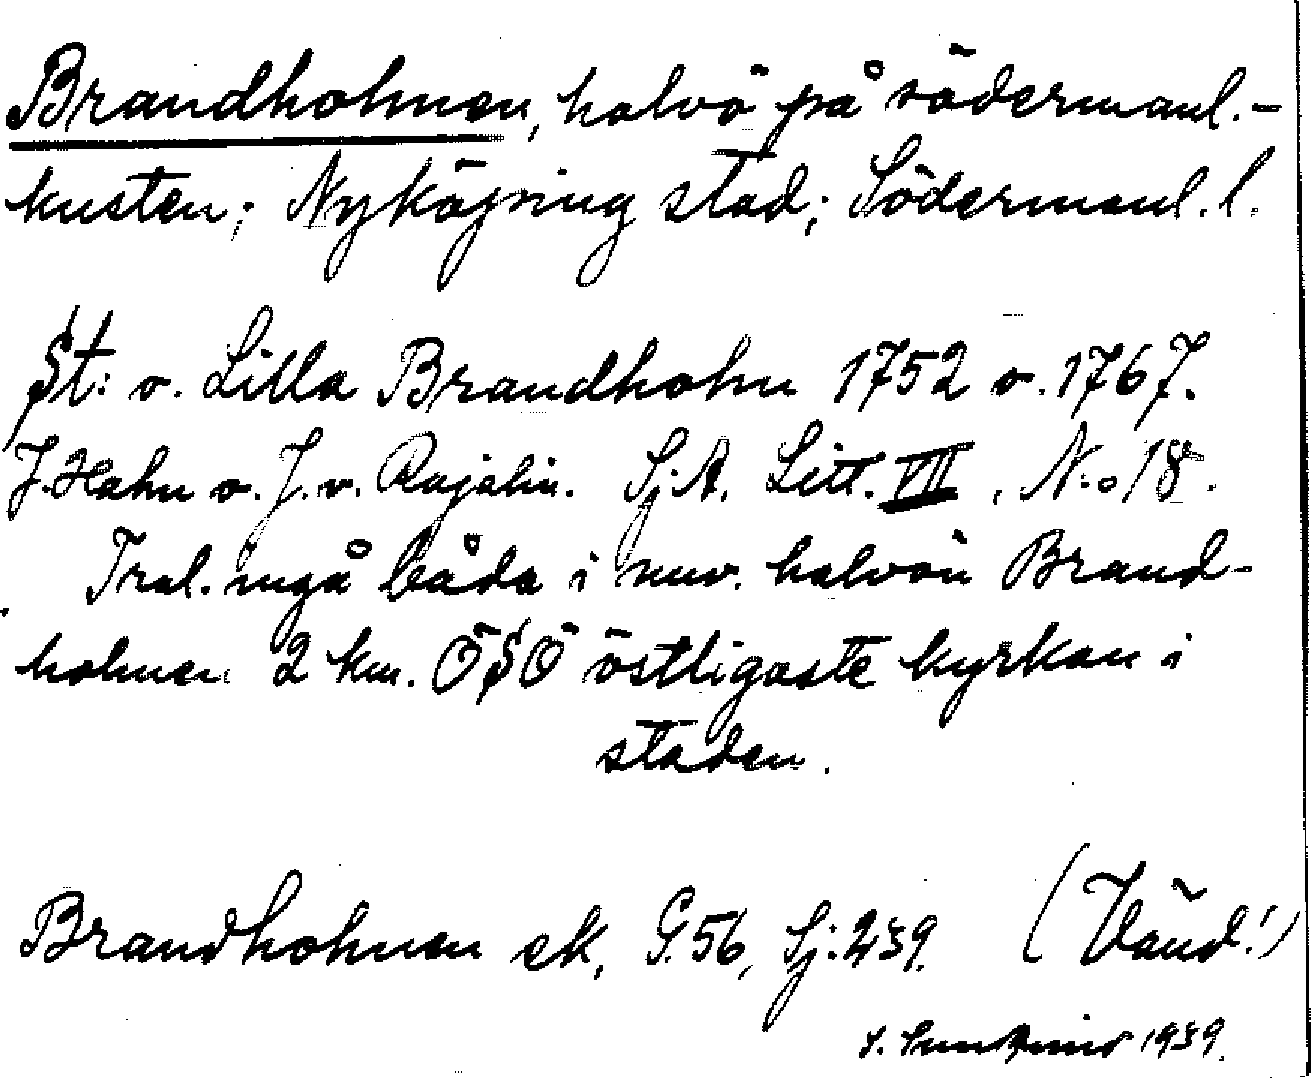 Brandholmen, halvö på södermanl.-
kusten; Nyköping stad; Södermanl. l.
St: o. Lilla Brandholm 1752 o. 1767.
J. Hahn o. J. v. Rajalin. Sj. A. Litt. VII, N:o 18.
Trol. ingå båda i nuv. halvön Brand-
holmen 2 km. ÖSÖ östligaste kyrkan i
staden.
Brandholmen ek, G. 56, Sj: 239. (Vänd!)
1939.